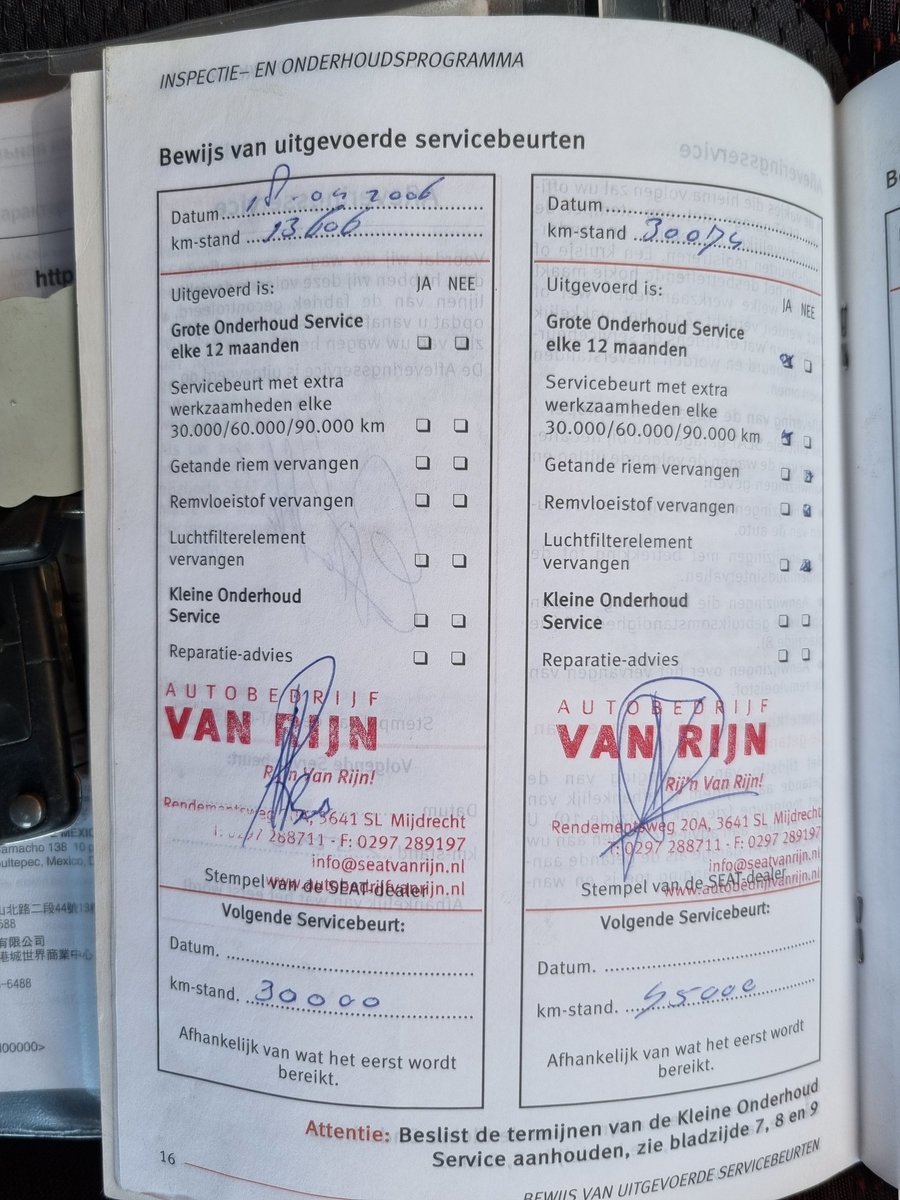 INSPECTIE– EN ONDERHOUDSPROGRAMMA
Bewijs van uitgevoerde servicebeurten
Datum 18-04 2006
km-stand 13606
Uitgevoerd is: JA NEE
Grote Onderhoud Service
elke 12 maanden
Servicebeurt met extra
werkzaamheden elke
30.000/60.000/90.000 km
Getande riem vervangen
Remvloeistof vervangen
Luchtfilterelement
vervangen
Kleine Onderhoud
Service
Reparatie-advies
AUTOBEDRIJF
VAN RIJN
Rij'n Van Rijn!
Rendementsweg 20A, 3641 SL Mijdrecht
T: 0297 288711 - F: 0297 289197
info@seatvanrijn.nl
www.autobedrijfvanrijn.nl
Stempel van de SEAT-dealer
Volgende Servicebeurt:
Datum.
km-stand. 30000
Afhankelijk van wat het eerst wordt
bereikt.
Datum
km-stand 30074
Uitgevoerd is:
JA NEE
Grote Onderhoud Service
elke 12 maanden
Servicebeurt met extra
werkzaamheden elke
30.000/60.000/90.000 km
Getande riem vervangen
Remvloeistof vervangen
Luchtfilterelement
vervangen
Kleine Onderhoud
Service
Reparatie-advies
AUTOBEDRIJF
VAN RIJN
Rij'n Van Rijn!
Rendementsweg 20A, 3641 SL Mijdrecht
T: 0297 288711 - F: 0297 289197
info@seatvanrijn.nl
www.autobedrijfvanrijn.nl
Stempel van de SEAT-dealer
Volgende Servicebeurt:
Datum.
km-stand. 45000
Afhankelijk van wat het eerst wordt
bereikt.
Attentie: Beslist de termijnen van de Kleine Onderhoud
Service aanhouden, zie bladzijde 7, 8 en 9
16
BEWIJS VAN UITGEVOERDE SERVICEBEURTEN
http